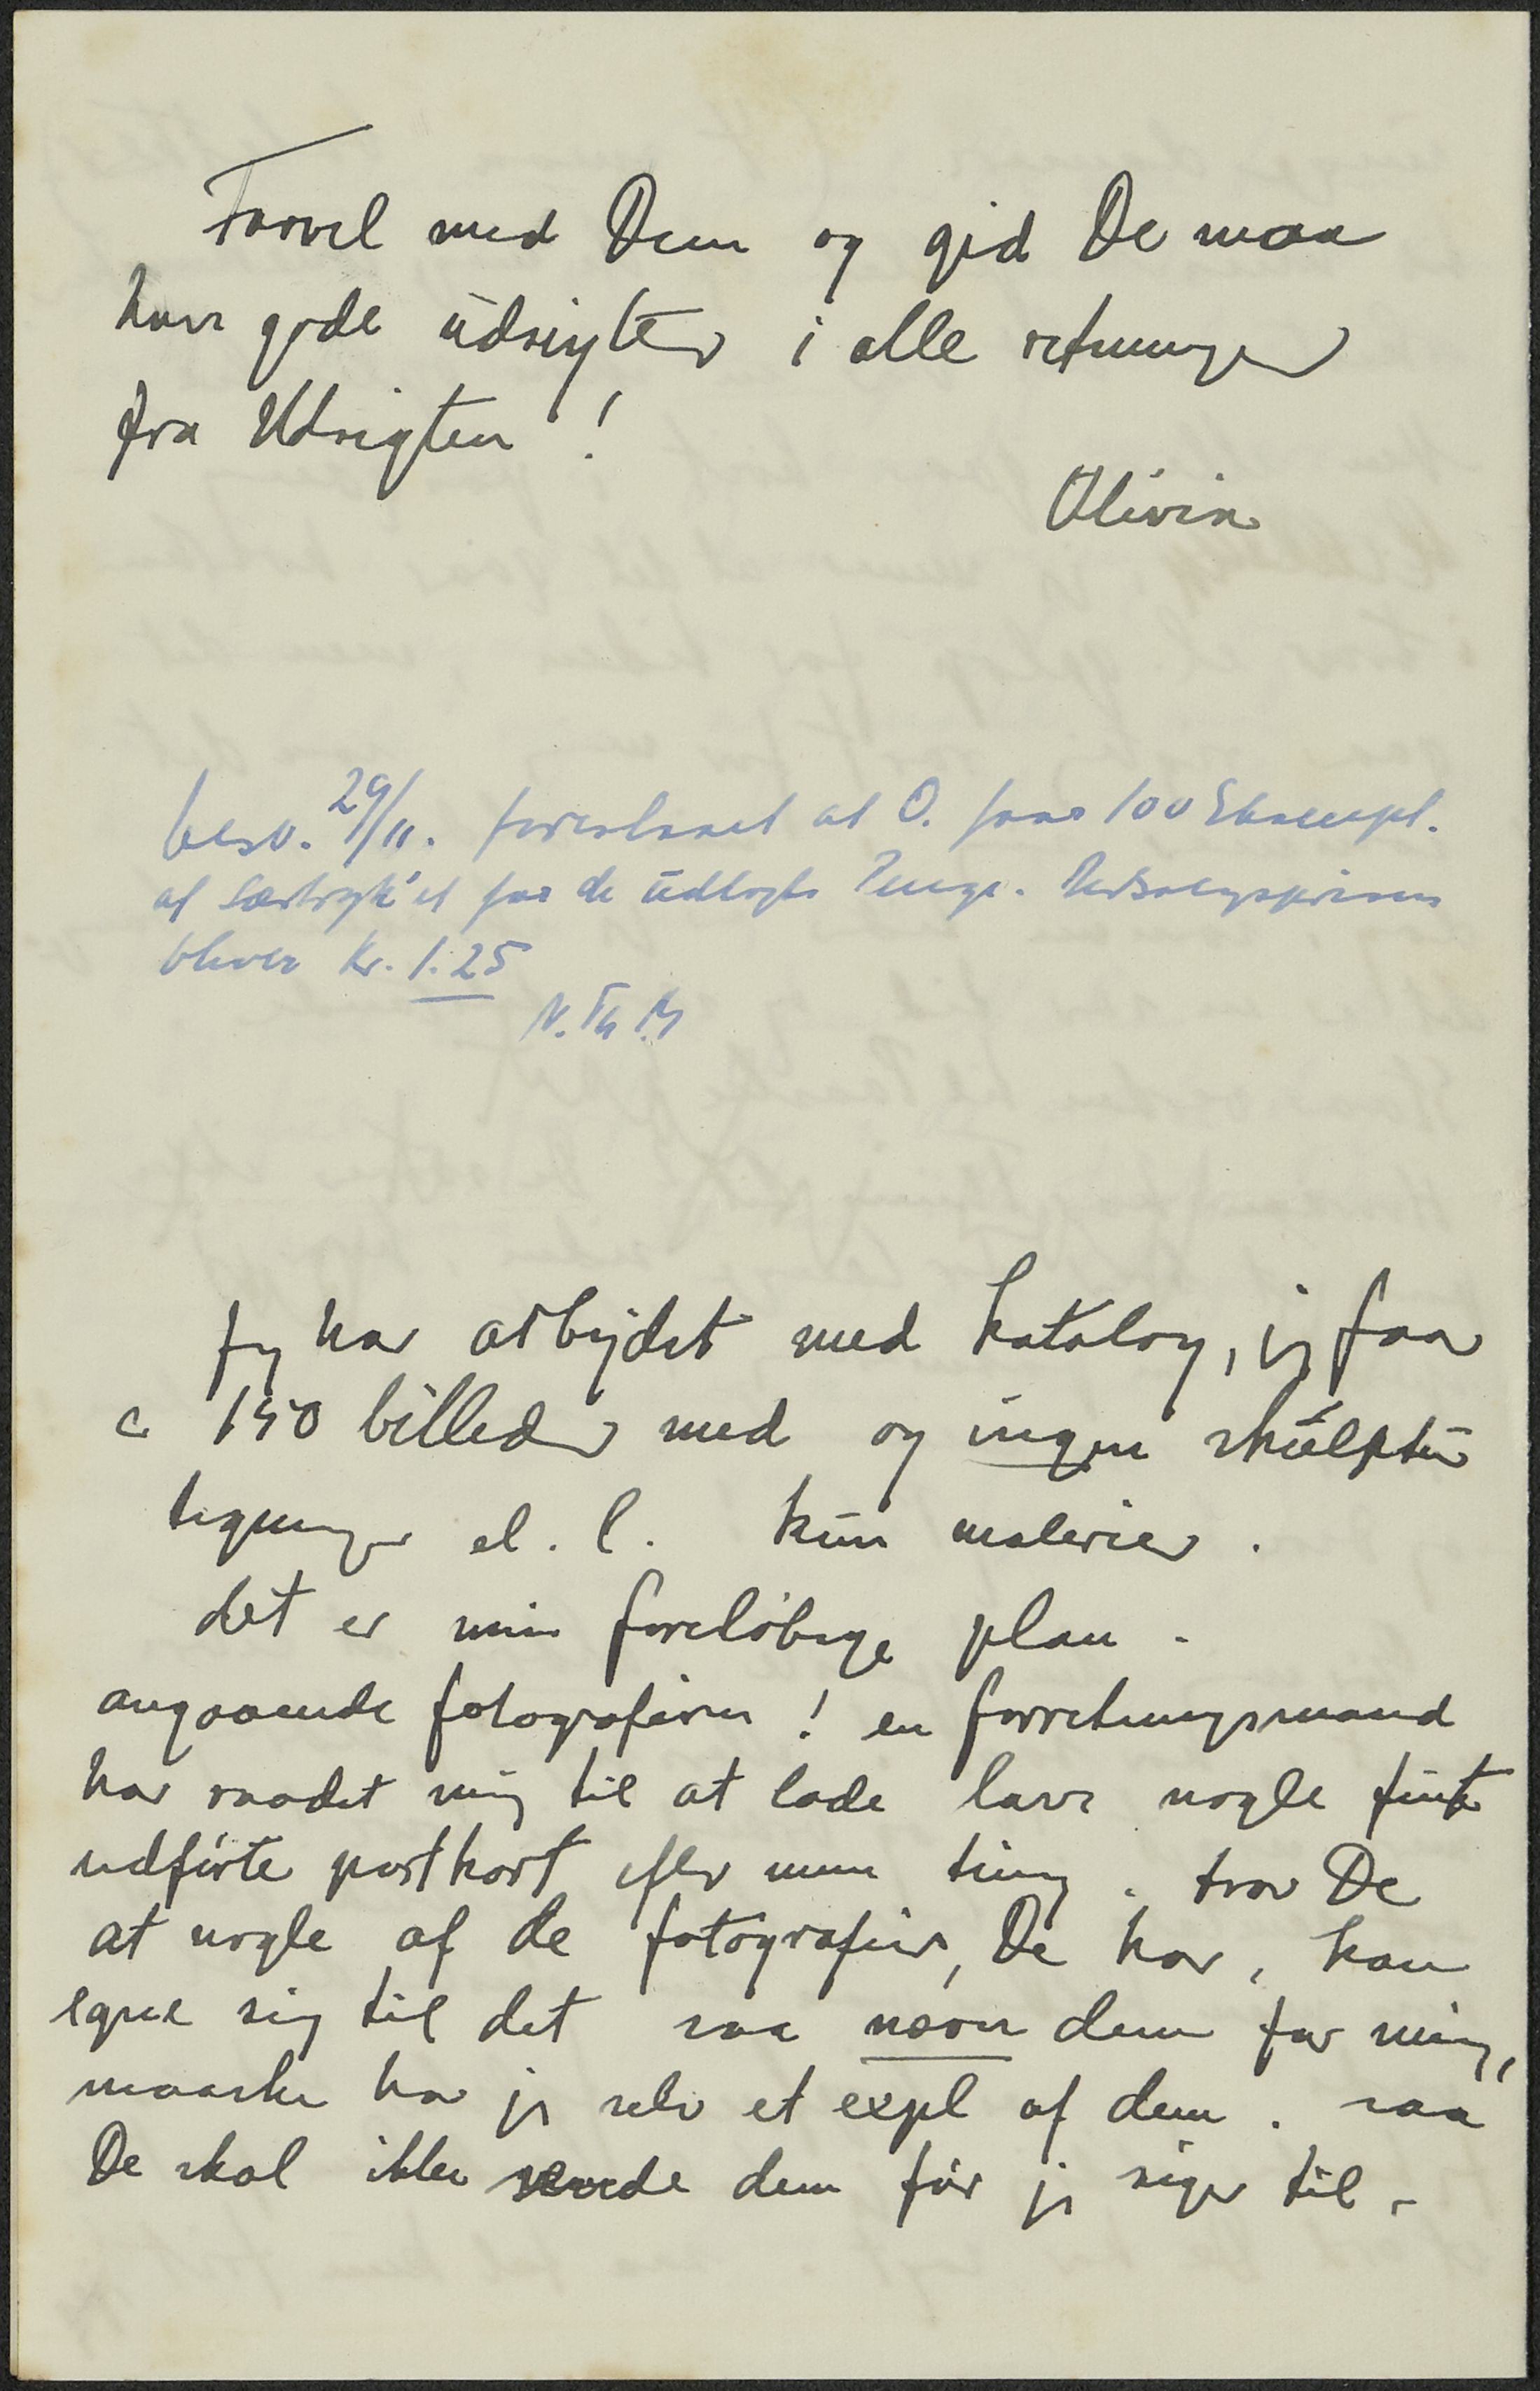 Farvel med Dem og gid De maa
have gode udsigter i alle retninger
fra Udsigten!
Olivia
besv. 29/11. foreslaaet at O. faar 100 Eksempl.
af Særtryk'et for de udlagte Penge. Udsalgsprisen
bliver Kr. 1.25
N. Th. M
Jeg har arbejdet med katalog, jeg faar
c 150 billeder med og ingen skulptur
tegninger el. l. kun malerier.
det er min foreløbige plan.
angaaende fotografierne! en forretningsmand
har raadet mig til at lade lave nogle fint
udførte postkort efter mine ting. tror De
at nogle af de fotografier, De har, kan
egne sig til det saa nævn dem for mig,
maaske har jeg selv et expl af dem. saa
De skal ikke sende dem før jeg siger til.